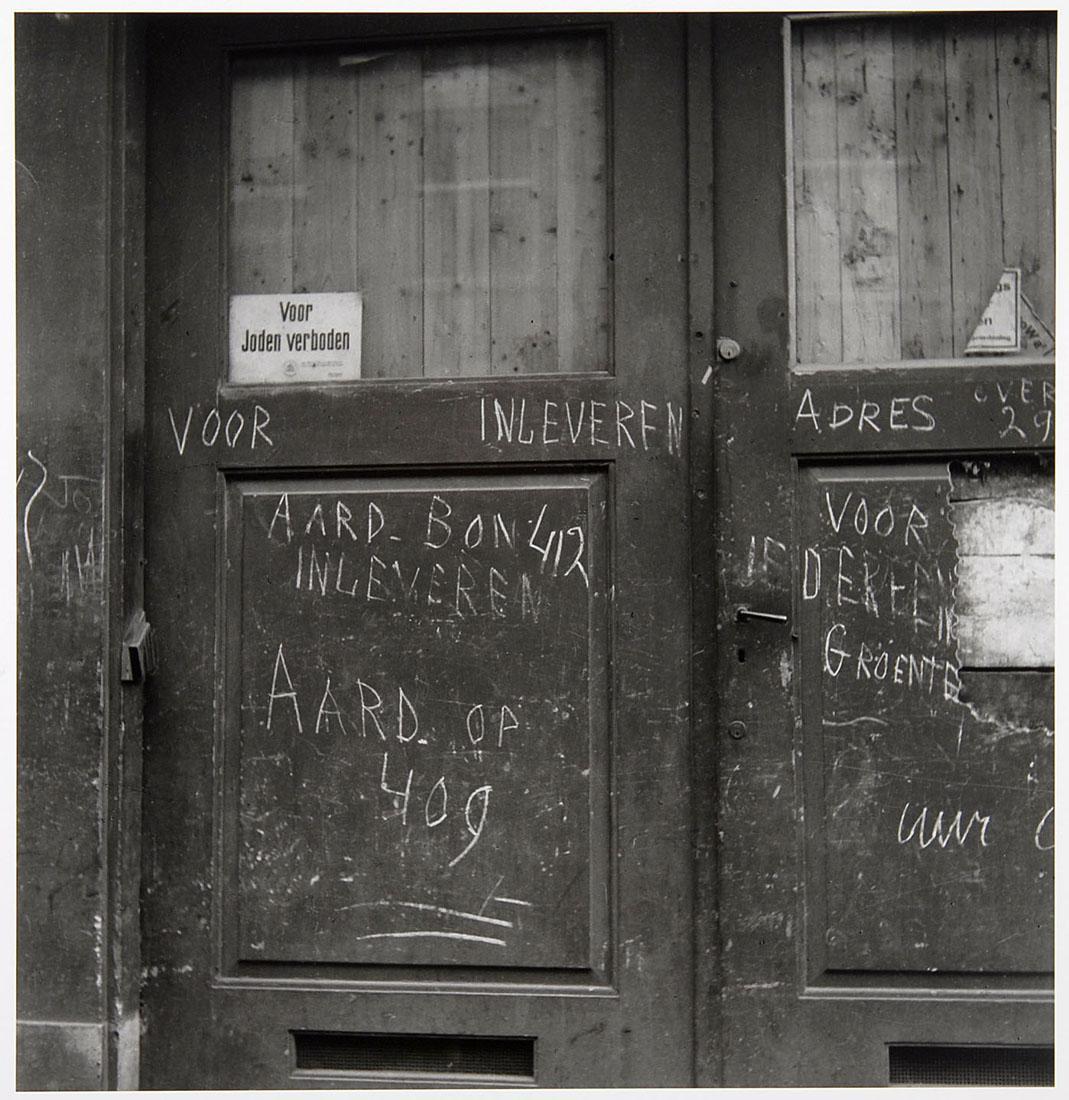 Voor
Joden verboden
VOOR INLEVEREN
AARD- BON 412
INLEVEREN
AARD OP
409
ADRES OVER
29
VOOR
GROENTE
uur